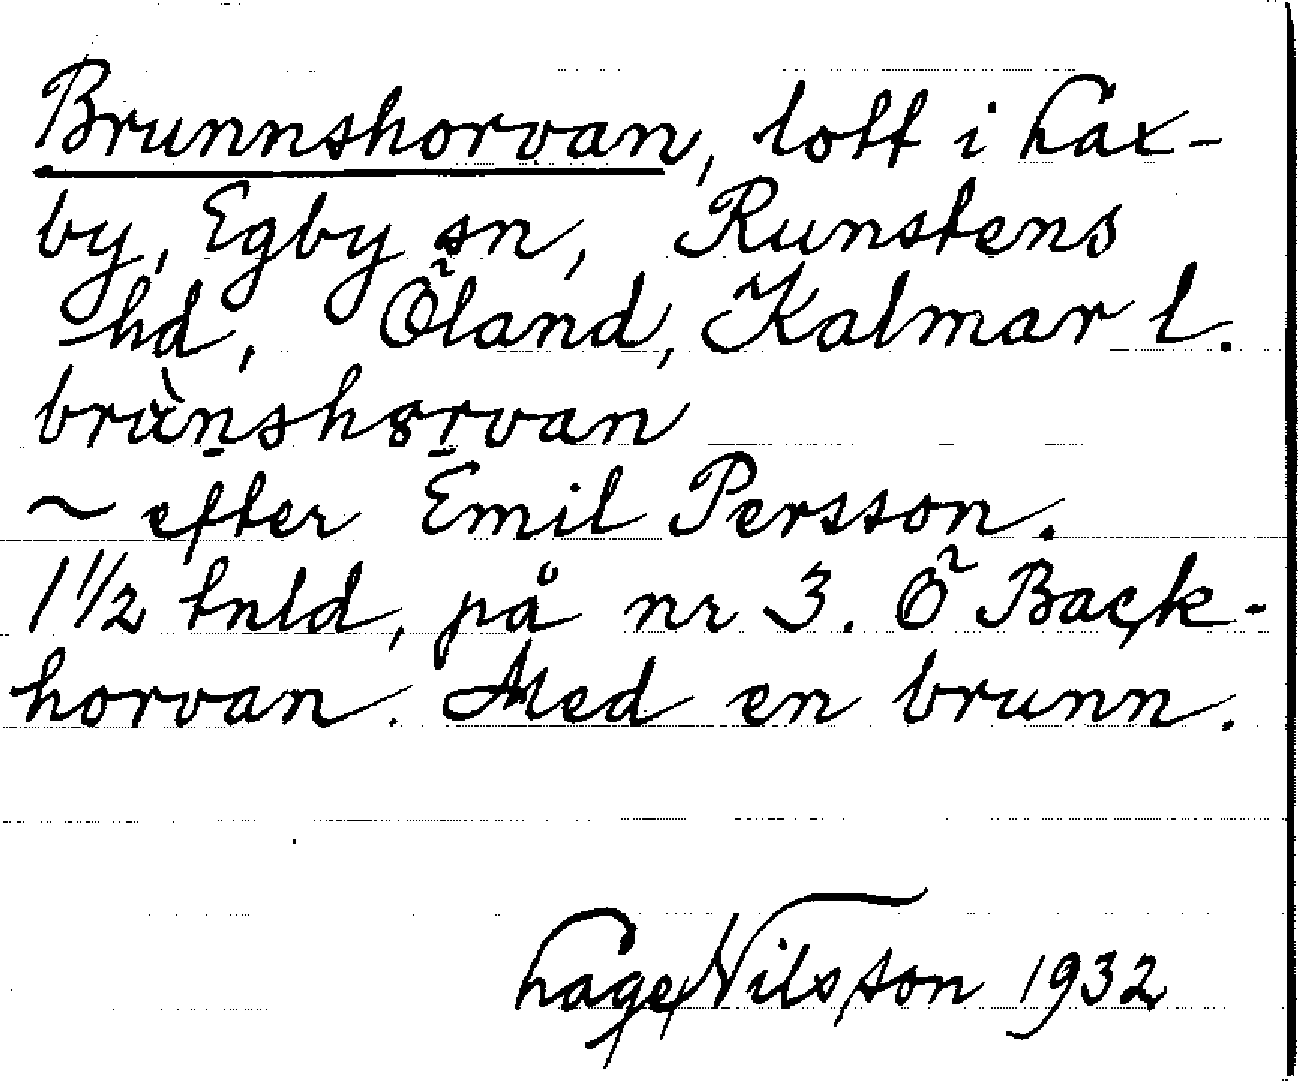 Brunnshorvan, lott i Lax-
by, Egby sn, Runstens
hd, Öland, Kalmar l.
brùnshorvan
~ efter Emil Persson.
1 1/2 tnld, på nr 3. Ö Back-
horvan. Med en brunn.
Lage Nilsson 1932